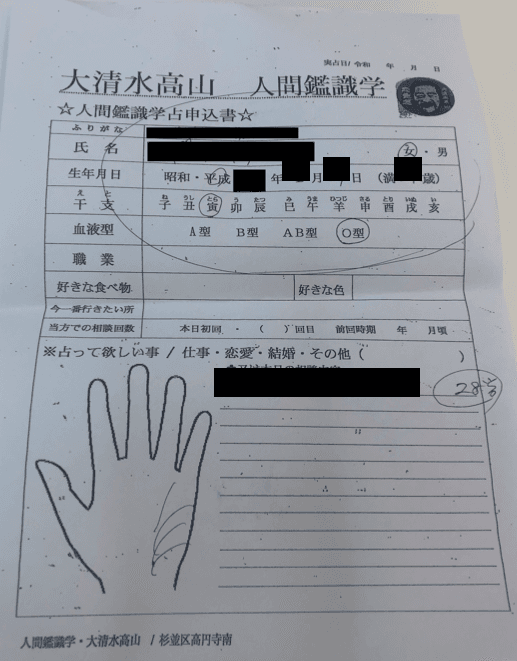 実占日/ 令和 年 月 日
大清水高山 人間鑑識学
☆人間鑑識学占申込書☆
ふりがな
氏名 女・男
生年月日 昭和・平成 年 月 日 (満 歳)
えと
干支 子 丑 寅 卯 辰 巳 午 羊 申 酉 戌 亥
ね うし とら う たつ み うま ひつじ さる とり いぬ い
血液型 A型 B型 AB型 O型
職業
好きな食べ物 好きな色
今一番行きたい所
当方での相談回数 本日初回 ・ ( )回目 前回時期 年 月頃
※占って欲しい事 / 仕事・恋愛・結婚・その他 ( )
28
人間鑑識学・大清水高山 / 杉並区高円寺南